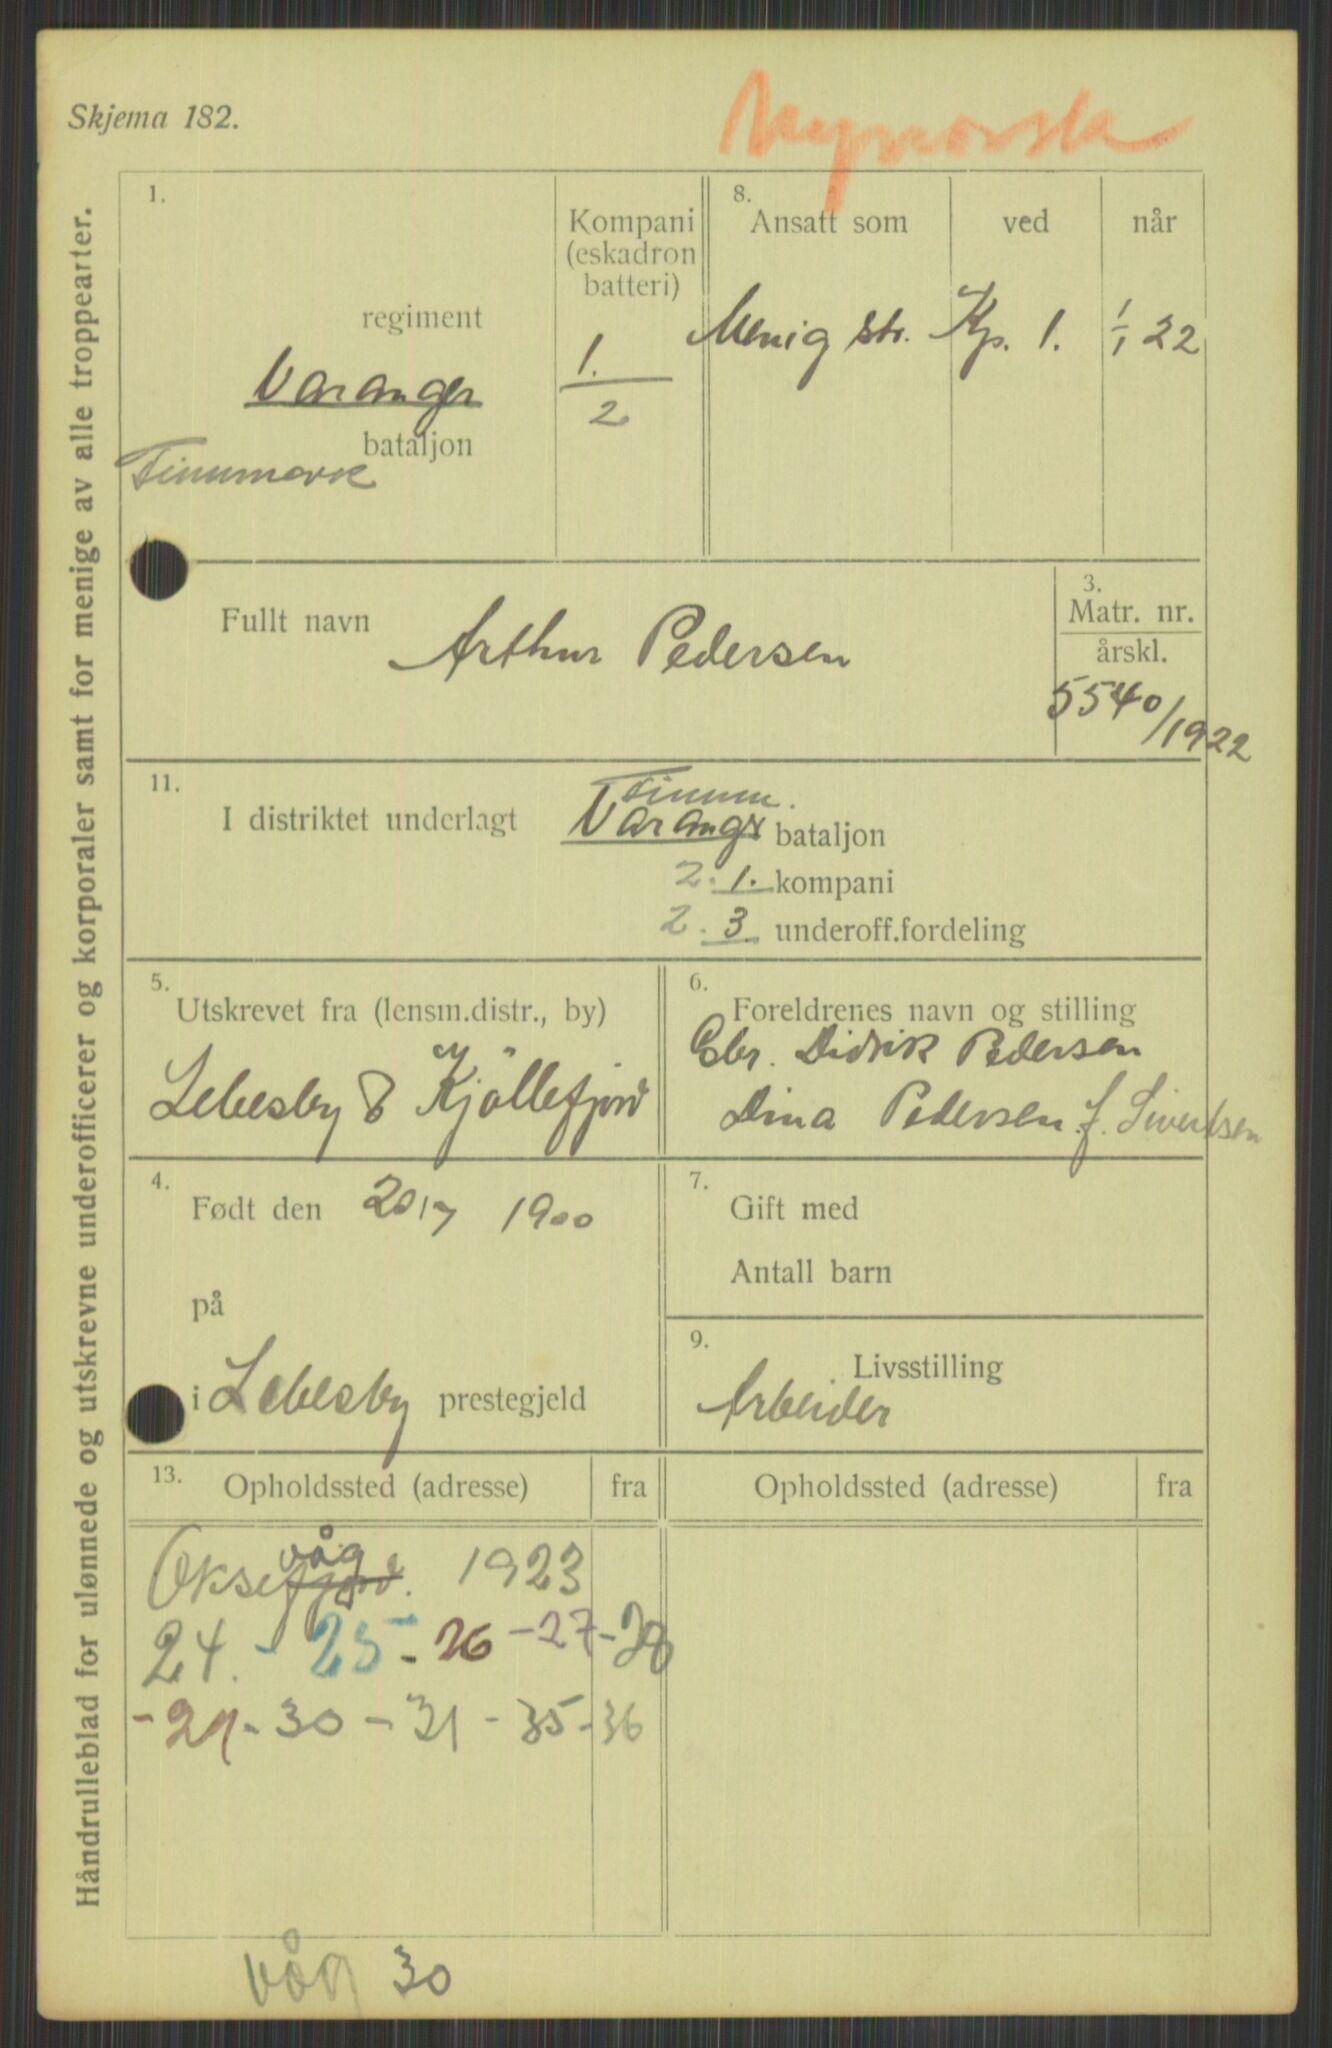 Skjema 182.
Nynorsk
Håndrulleblad for ulønnede og utskrevne underofficerer og korporaler samt for menige av alle troppearter.
1.
regiment
Varanger
bataljon
Finnmark
Kompani
(eskadron
batteri)
1.
2
8.
Ansatt som
ved
når
Menig str. Kp. 1. 1/1 22
Fullt navn
Arthur Pedersen
3.
Matr. nr.
årskl.
5540/1922
11.
Finnm.
I distriktet underlagt Varanger bataljon
2. 1. kompani
2. 3 underoff.fordeling
5.
Utskrevet fra (lensm.distr., by)
Lebesby & Kjöllefjord
6.
Foreldrenes navn og stilling
Gbr. Didrik Pedersen
Dina Pedersen f. Sivertsen
4.
Født den 20/7 1900
på
i Lebesby prestegjeld
7.
Gift med
Antall barn
9.
Livsstilling
Arbeider
13.
Opholdssted (adresse)
fra
Opholdssted (adresse)
fra
våg
Oksefjord. 1923
24. - 25 - 26 - 27 - 28
- 29 - 30 - 31 - 35 - 36
våg 30